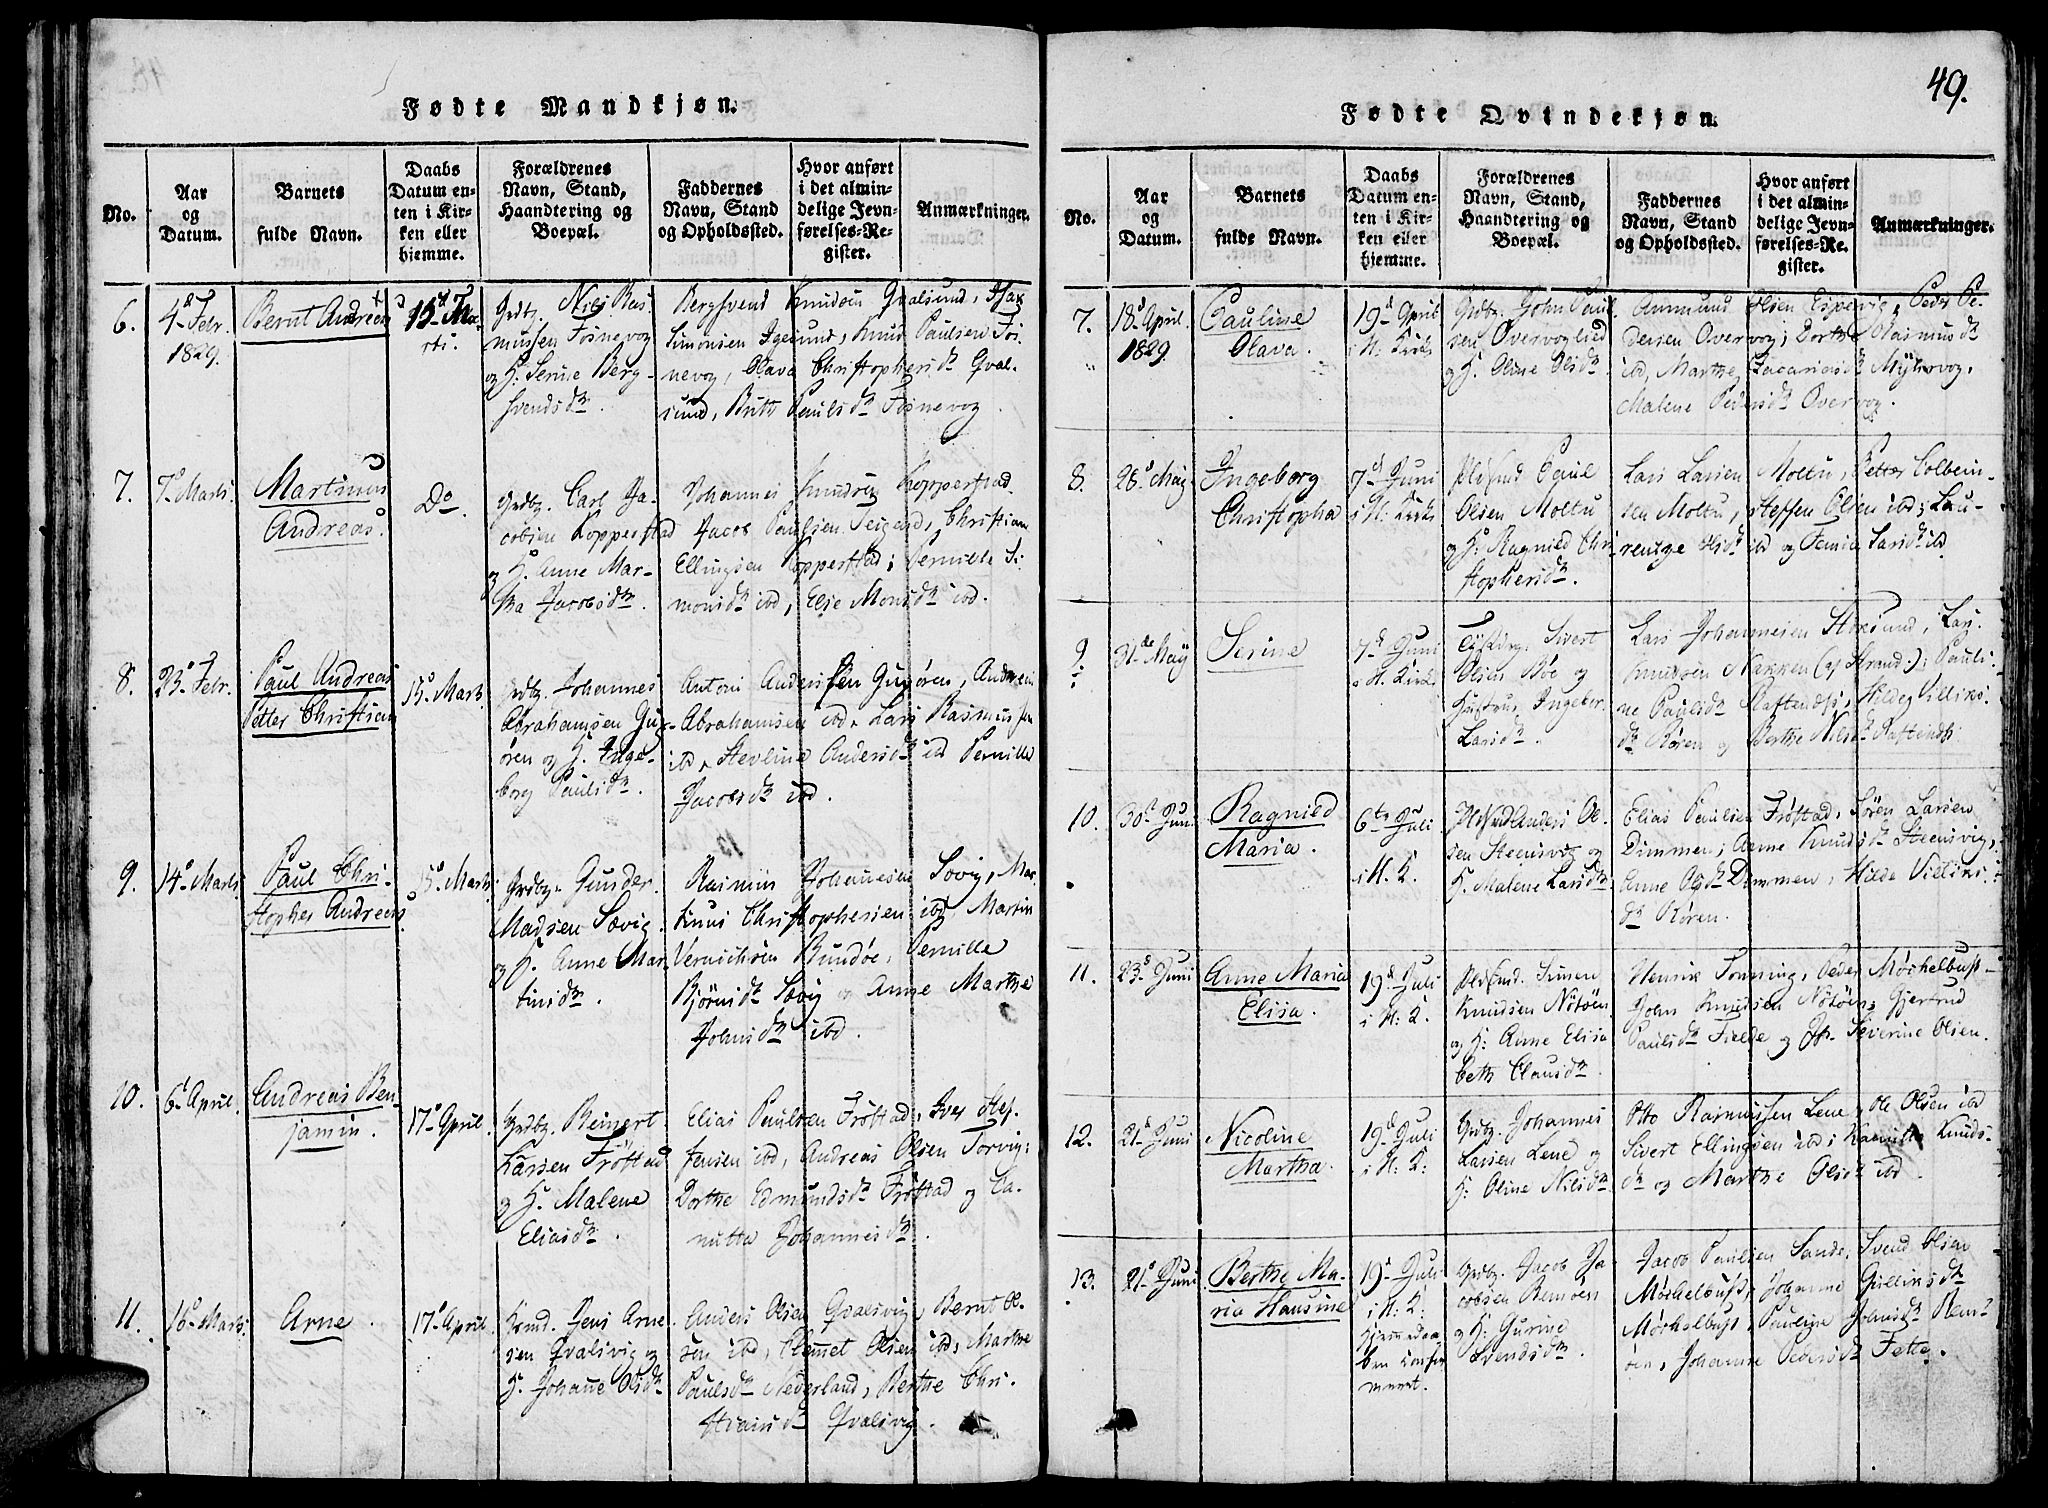 49.
Fødte Mandkjøn.
No.
Aar
og
Datum.
Barnets
fulde Navn.
Daabs
Datum en-
ten i Kir-
ken eller
hjemme.
Forældrenes
Navn, Stand,
Haandtering og
Boepæl.
Faddernes
Navn, Stand
og Opholdssted.
Hvor anført
i det almin-
delige Jevn-
førelses-Re-
gister.
Anmærkninger.
6.
4d Febr.
1829.
Bernt Andreas
15d Ma-
rti.
Grdbr. Nils Ras-
mussen Fosnevog
og H. Serine Berg-
svendsdtr.
Bergsvend Knudsen Qvalsund, Isak
Simonsen Igesund, Knud Paulsen Fos-
nevog, Olava Christophersdtr Qval-
sund, Paulsdtr Fosnevog
7.
7d Marts
Martinus
Andreas.
Do.
Grdbr. Carl Ja-
cobsen Koppestad
og H. Anne Mar-
tha Jacobsdtr.
Johannes Knudsen Koppestad
Jacob Paulsen Teigene, Christian
Ellingsen Koppestad; Pernille Si-
monsdtr ibd, Else Monsdtr ibd.
8.
23d Febr.
Paul Andreas
Petter Christian
15d Marts
Grdbr. Johannes
Abrahamsen Gur-
øren og H. Inge-
borg Paulsdtr.
Antoni Andersen Gurøren, Andreas
Abrahamsen ibd, Lars Rasmussen
ibd, Stevline Andersdtr ibd Pernille
Jacobsdtr ibd.
9.
14d Marts
Paul Chri-
stopher Andreas
15d Marts
Grdbr. Gunder
Madsen Sævig
og H. Anne Mar-
tinsdtr.
Rasmus Johannesen Sævig, Mar-
tinus Christophersen ibd, Martin
Rundøe, Pernille
Bjørnsdtr Sævig og Anne Marthe
Johnsdtr ibd.
10.
6d April.
Andreas Ben-
jamin.
17d April.
Grdbr. Reinert
Larsen Frøstad
og H. Malene
Eliasdtr.
Elias Paulsen Frøstad, Iver Stef-
fensen ibd, Andreas Olsen Torvig;
Dorthe Edmundsdtr Frøstad og Ca-
nutta Johannesdtr.
11.
16d Marts.
Arne.
17d April.
Jens Arne-
sen Qvalsvig og
H. Johanne Olsdtr
Anders Olsen Qvalsvig, Bernt Ol-
sen ibd, Clemet Olsen ibd, Marthe
Paulsdtr Nederland, Berthe Chri-
stiansdtr Qvalsvig.
Fødte Qvindekjøn.
No.
Aar
og
Datum.
Barnets
fulde Navn.
Daabs
Datum en-
ten i Kir-
ken eller
hjemme.
Forældrenes
Navn, Stand,
Haandtering og
Boepæl.
Faddernes
Navn, Stand
og Opholdssted.
Hvor anført
i det almin-
delige Jevn-
førelses-Re-
gister.
Anmærkninger.
7.
18d April.
1829.
Pauline
Olava.
19d April
i H: Kirke
Grdbr. John Paul-
sen Overvoglied
og H. Oline Olsdtr.
Anmund Olsen Espevig, Peder Pe-
dersen Overvog; Dorthe Rasmusdtr
ibd, Marthe Zacariasdtr Myklevog,
Malene Pedersdtr Overvog.
8.
28d Maij
Ingeborg
Christopha
7d Juni
i H: Kirke
Pladsmd Paul
Olsen Moltu
og H: Ragnied Chri-
stophersdtr.
Lars Larsen Moltu, Petter Colbein-
sen Moltu, Steffen Olsen ibd; Lau-
rentze Olsdtr ibd og Larsdtr ibd
9.
31de Maij
Serine
7d Juni
i H. Kirke
Sivert
Olsen Bøe og
Hustrue Ingebor
Larsdtr.
Lars Johannesen Stoksund, Lars
Knudsen Nakken (af Strand:); Pauli-
ne Paulsdtr Raftenæs, Hilde Villiks-
dtr Røren og Berthe Nilsdtr
10.
30d Juni
Ragnied
Maria.
6te Juli
i H. K.
Pladsmd Anders Ol-
sen Steensvig og
H. Malene Larsdtr.
Elias Paulsen Frøstad, Søren Larsen
Dimmen; Anne Knudsdtr Steensvig,
Anne Olsdtr Dimmen, Hilde Villiks-
dtr Røren.
11.
23d Juni
Anne Maria
Elisa.
19d Juli
i H: K.
Pladsmd. Simen
Knudsen Notøen
og H: Anne Elisa-
beth Clausdtr.
Henrik Tonning, Peder Mørkelbust
John Knudsen Notøen; Gjertrud
Paulsdtr Fielde og Severine Olsen.
12.
21d Juni
Nicoline
Martha.
19d Juli
i H: K:
Grdbr. Johannes
Larsen Lene og
H: Oline Nilsdtr
Otto Rasmussen Lene, Ole Olsen ibd
Sivert Ellingsen ibd; Knuds-
dtr og Marthe Olsdtr ibd.
13.
21d Juni
Berthe Ma-
ria Hansine
19d Juli
i H: K:
hjemmedaa-
ben confir-
meert.
Grdbr. Jacob Ja-
cobsen Remøen
og H: Gurine
Svendsdtr.
Jacob Paulsen Sande, Svend Olsen
Mørkelbust, Johanne Gulliksdtr
Mørkelbust, Pauline Johnsdtr Rem-
øen, Johanne Pedersdtr Tette.